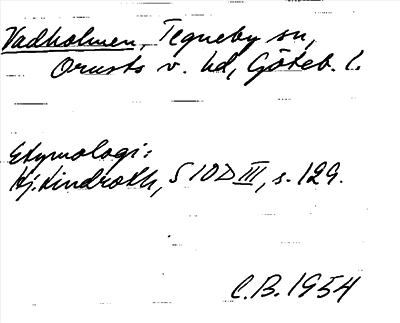 Vadholmen, Tegneby sn,
Orusts v. hd, Göteb. l.
Etymologi:
Hj. Lindroth, SIOD III, s. 129.
C.B. 1954